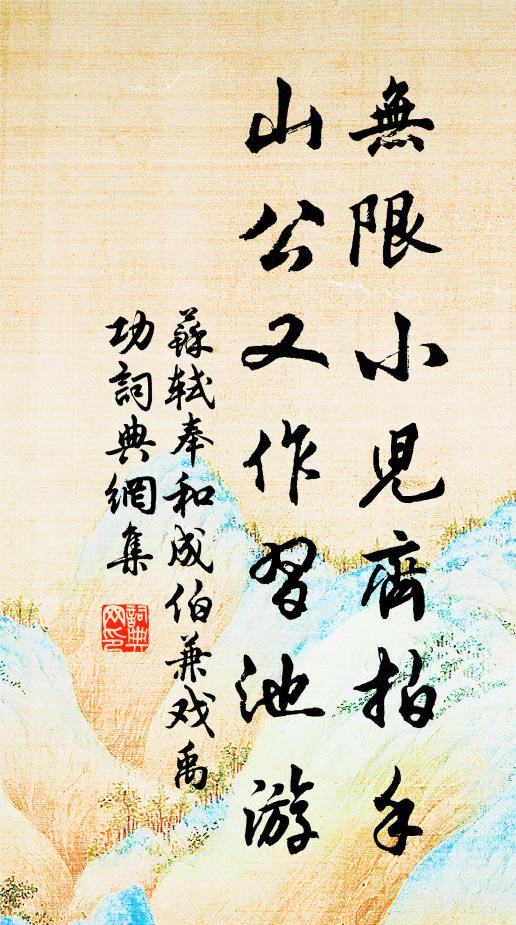 無限小兒齊拍手
山公又作習池游
蘇軾奉和成伯兼戏禹
功詞典網集
詞典
网印